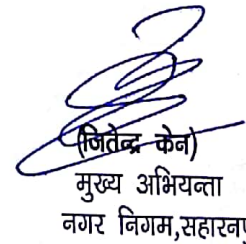 (जितेन्द्र केन)
मुख्य अभियन्ता
नगर निगम,सहारन